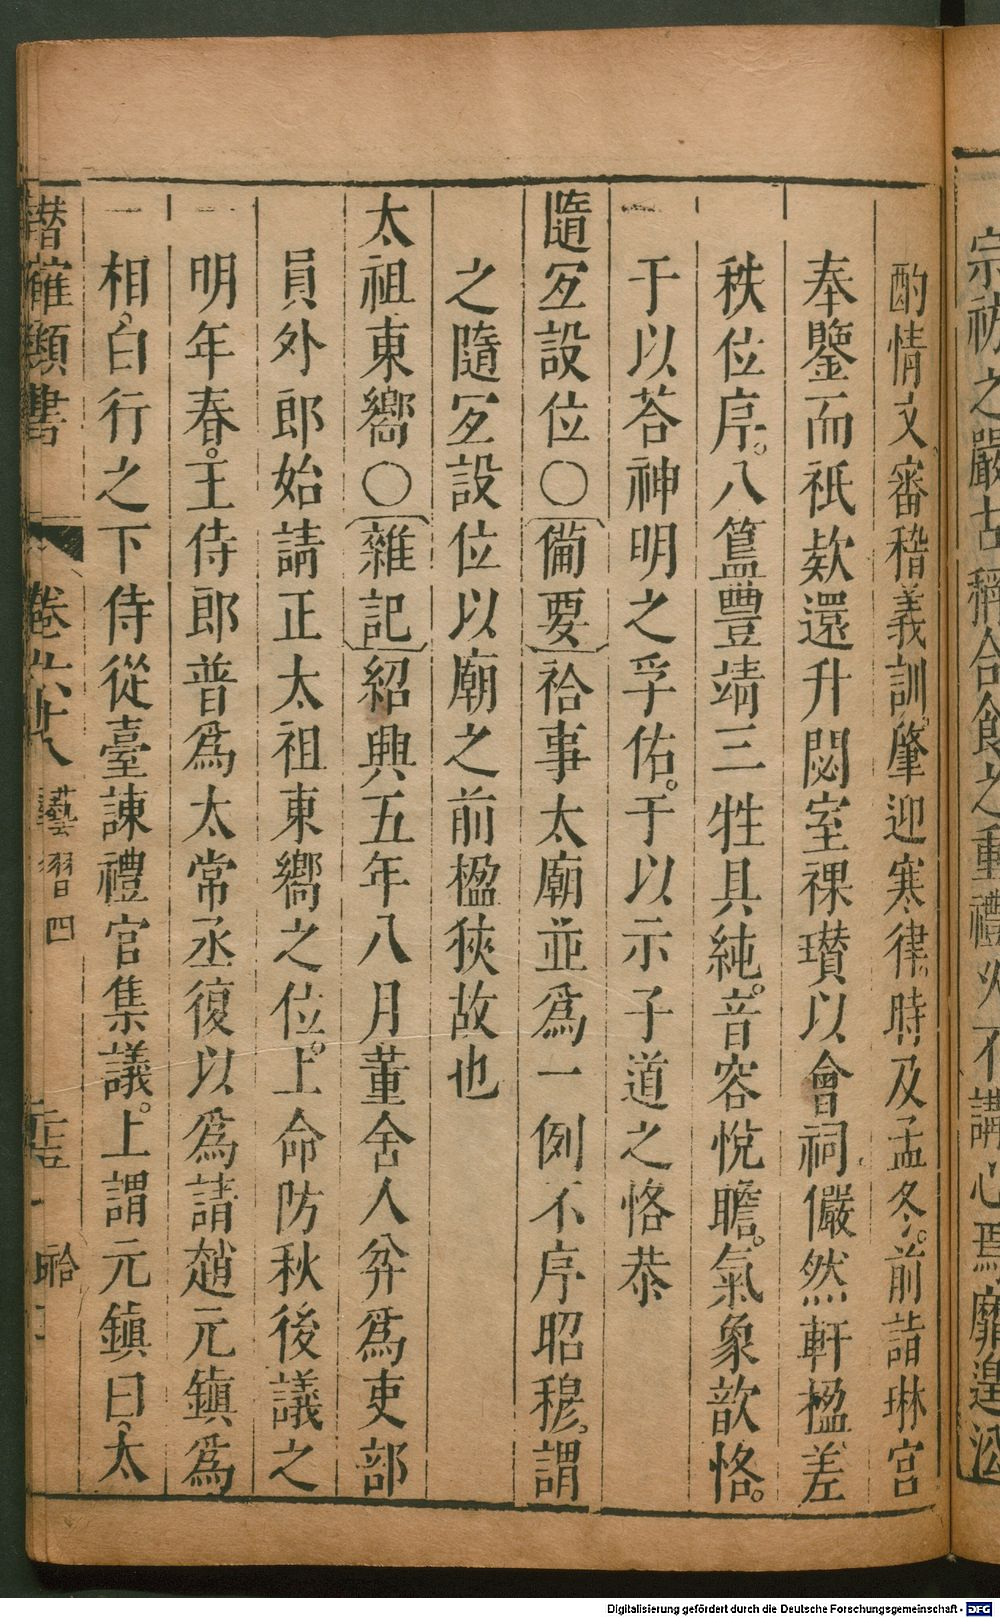 宗祊之嚴古稱合食之重禮
不講心焉靡遑
酌情文審稽義訓肇迎寒律時及孟冬前詣琳宮
奉鑒而祇款還升閟室祼瓚以會祠儼然軒楹差
秩位序。八簋豐靖三牲具純。音容恱瞻。氣象歆恪。
于以荅神明之孚佑。于以示子道之恪恭
隨室設位〇〔備要〕祫事太廟並爲一例不序昭穆。謂
之隨室設位以廟之前楹狹故也
太祖東嚮〇〔雜記〕紹興五年八月董舍人弅爲吏部
員外郎始請正太祖東嚮之位。上命防秋後議之
明年春。王侍郎普爲太常丞復以爲請趙元鎮爲
相。白行之下侍從臺諫禮官集議。上謂元鎮曰、太
潛確類書 卷六十八 藝習四 祫
Digitalisierung gefördert durch die Deutsche Forschungsgemeinschaft - DFG